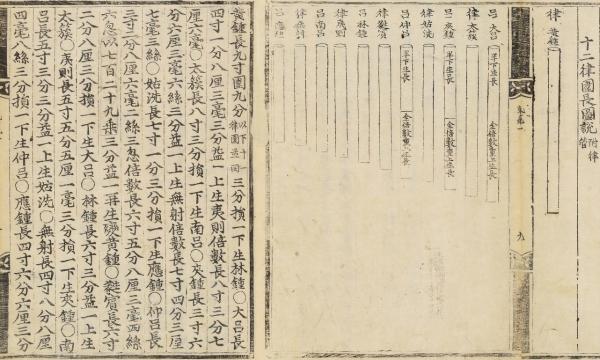 十二律圍長圖說 附律管
律 黃鍾
卷之一
九
呂 大呂 半下生長 全倍數重上生長
律 太簇
呂 夾鍾 半下生長 全倍數重上生長
律 姑洗
呂 仲呂 半下生長 全倍數重上生長
律 蕤賓
呂 林鍾
律 夷則
呂 南呂
律 無射
呂 應鍾
黃鍾長九寸圍九分以下十一律圍並同三分損一下生林鍾〇大呂長
四寸一分八厘三毫三分益一上生夷則倍數長八寸三分七
厘六毫〇太簇長八寸三分損一下生南呂〇夾鍾長三寸六
分六厘三毫六絲三分益一上生無射倍數長七寸四分三厘
七毫三絲〇姑洗長七寸一分三分損一下生應鍾〇仲呂長
三寸二分八厘六毫二絲三忽倍數長六寸五分八厘三毫四絲
六忽以七百二十九乘三分益一再生變黃鍾〇蕤賓長六寸
二分八厘三分損一下生大呂〇林鍾長六寸三分益一上生
太簇〇夷則長五寸五分五厘一毫三分損一下生夾鍾〇南
呂長五寸三分三分益一上生姑洗〇無射長四寸八分八厘
四毫八絲三分損一下生仲呂〇應鍾長四寸六分六厘三分